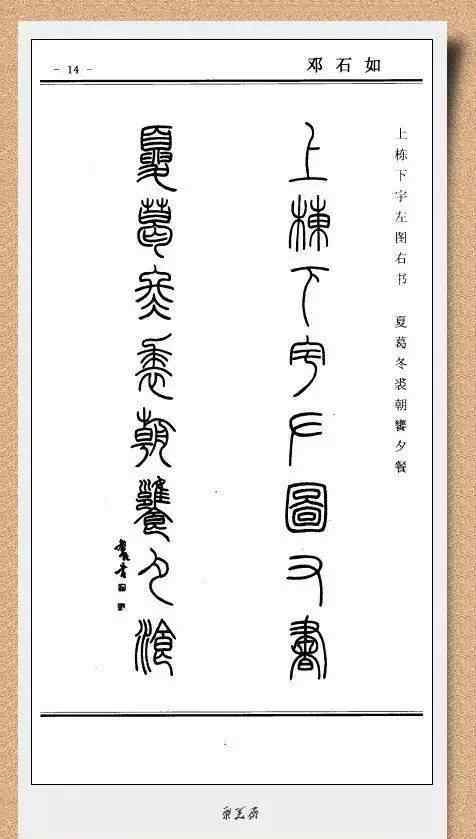 - 14 -
邓石如
上栋下宇左图右书 夏葛冬裘朝饔夕餐
上棟下宇𠂇圖又書
夏葛冬裘朝饔夕湌